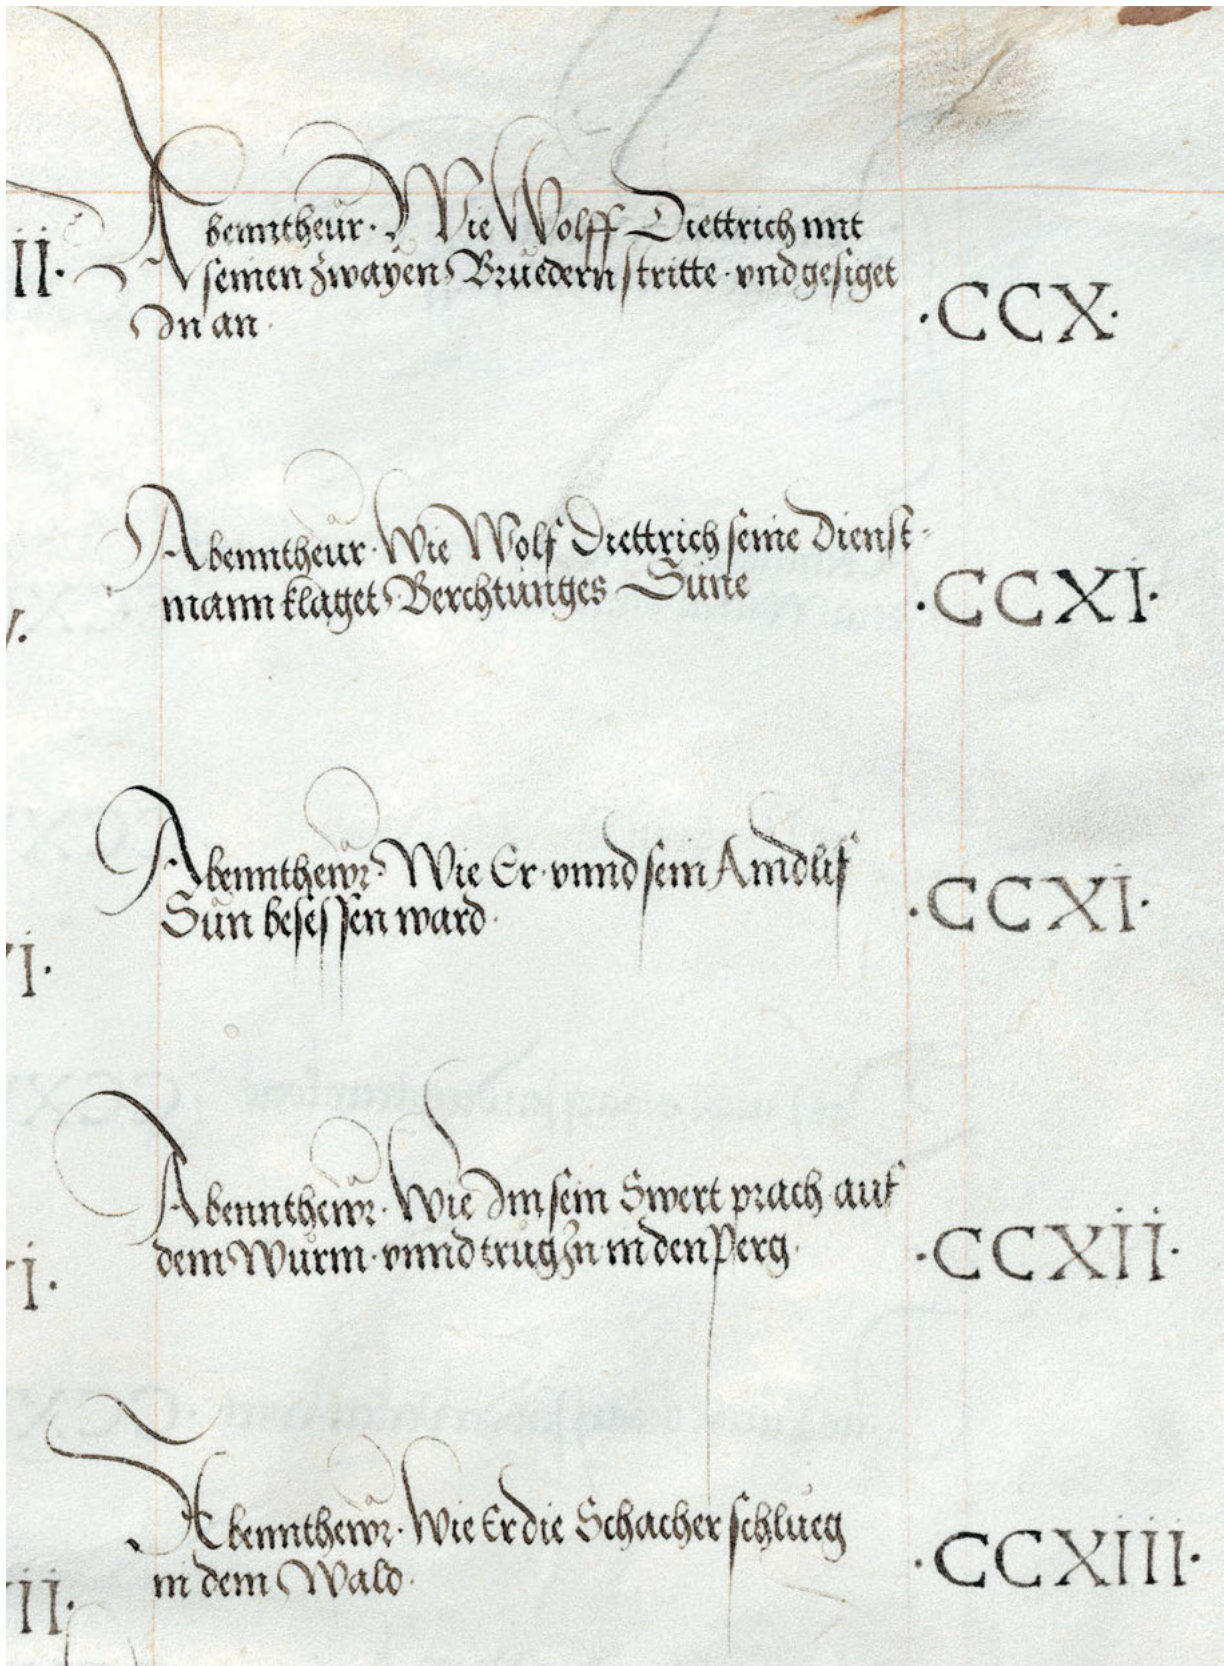 II·
Abenntheur· Wie Wolff Diettrich mit
seinen zwayen Bruedern stritte· vnd gesiget
In an·
·CCX·
Abenntheur· Wie Wolf Diettrich seine Dienst=
mann klaget Berchtunges Süne
·CCXI·
V.
Abennthewr· Wie Er· vnnd sein Aindlif
Sün besessen ward·
·CCXI·
VI·
Abennthewr· Wie Im sein Swert prach auf
dem Wurm· vnnd trůg In in den Perg·
·CCXII·
I·
Abennthewr· Wie Er die Schacher schlueg
in dem Wald·
·CCXIII·
II·